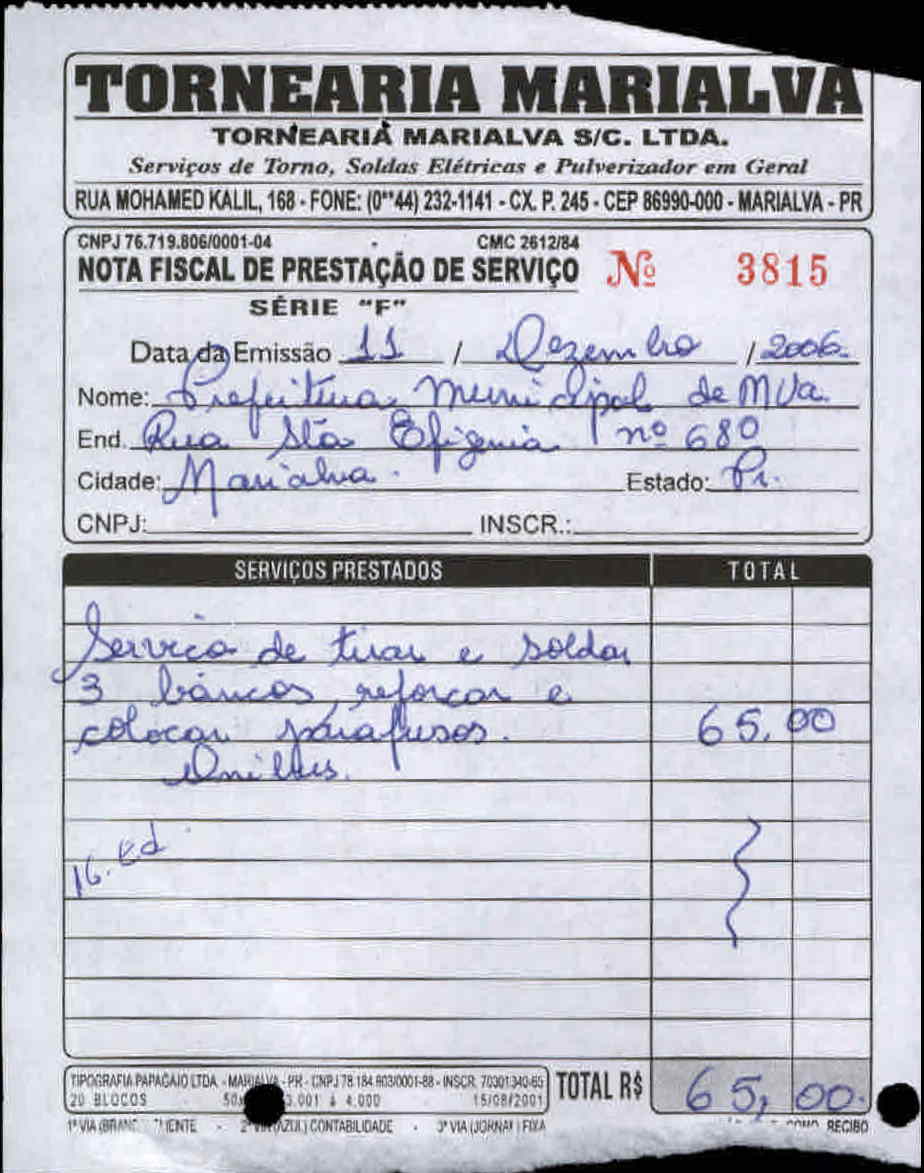 TORNEARIA MARIALVA
TORNEARIA MARIALVA S/C. LTDA.
Serviços de Torno, Soldas Elétricas e Pulverizador em Geral
RUA MOHAMED KALIL, 168 - FONE: (0**44) 232-1141 - CX. P. 245 - CEP 86990-000 - MARIALVA - PR
CNPJ 76.719.806/0001-04 CMC 2612/84
NOTA FISCAL DE PRESTAÇÃO DE SERVIÇO Nº 3815
SÉRIE "F"
Data da Emissão 11 / Dezembro / 2006
Nome: Prefeitura Municipal de MVa.
End. Rua Sta Efigenia nº 680
Cidade: Marialva. Estado: Pr.
CNPJ: INSCR.:
SERVIÇOS PRESTADOS TOTAL
Serviço de tirar e soldar
3 bancos, reforcar e
colocar parafusos. 65,00
Onibus.
16. Ed.
TIPOGRAFIA PAPAGAIO LTDA. - MARIALVA - PR - CNPJ 78 184 903/0001-88 - INSCR. 70301340-65
20 BLOCOS 3.001 á 4.000 15/08/2001
TOTAL R$ 65,00.
1ª VIA 2ª VIA (AZUL) CONTABILIDADE - 3ª VIA (JORNAL) FIXA
COMO RECIBO